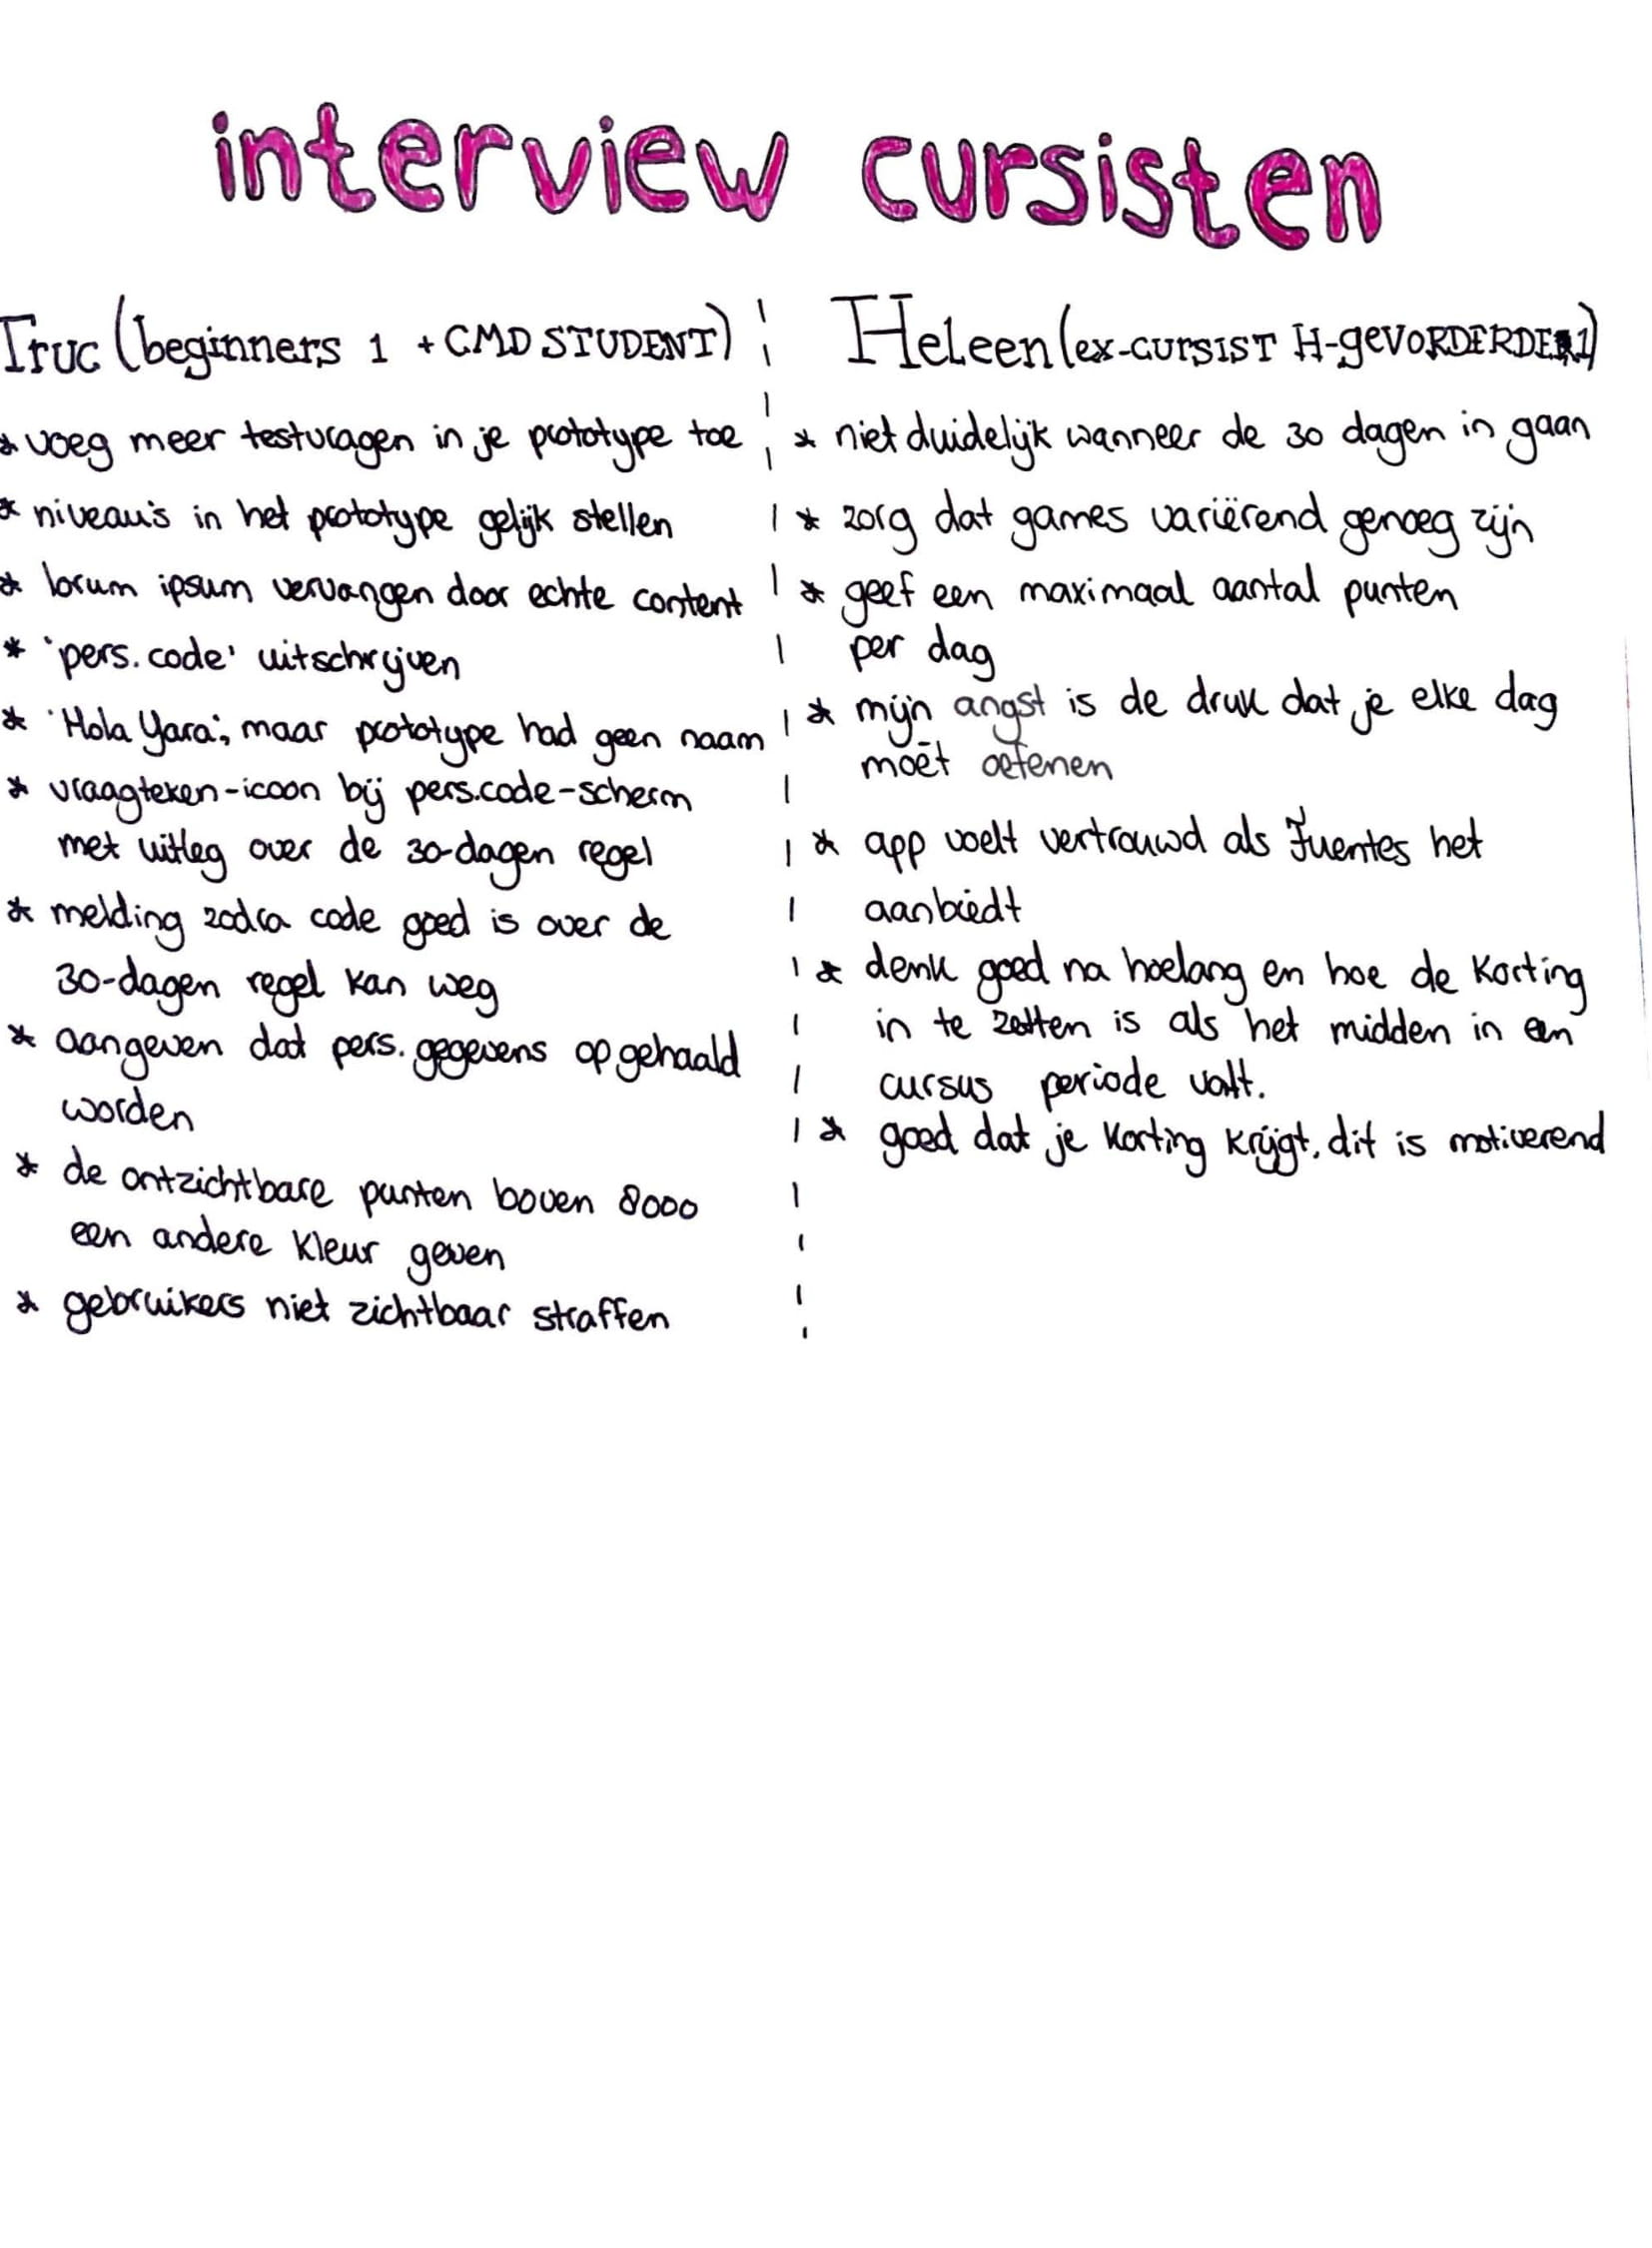 interview cursisten
Truc (beginners 1 + CMD STUDENT)
* voeg meer testvragen in je prototype toe
* niveau's in het prototype gelijk stellen
* lorum ipsum vervangen door echte content
* 'pers. code' uitschrijven
* 'Hola Yara', maar prototype had geen naam
* vraagteken-icoon bij pers.code-scherm
met uitleg over de 30-dagen regel
* melding zodra code goed is over de
30-dagen regel kan weg
* aangeven dat pers. gegevens opgehaald
worden
* de ontzichtbare punten boven 8000
een andere kleur geven
* gebruikers niet zichtbaar straffen
Heleen (ex-cursist H-gevorderde 1)
* niet duidelijk wanneer de 30 dagen in gaan
* zorg dat games variërend genoeg zijn
* geef een maximaal aantal punten
per dag
* mijn angst is de druk dat je elke dag
moét oefenen
* app voelt vertrouwd als Fuentes het
aanbiedt
* denk goed na hoelang en hoe de korting
in te zetten is als het midden in een
cursus periode valt.
* goed dat je korting krijgt, dit is motiverend